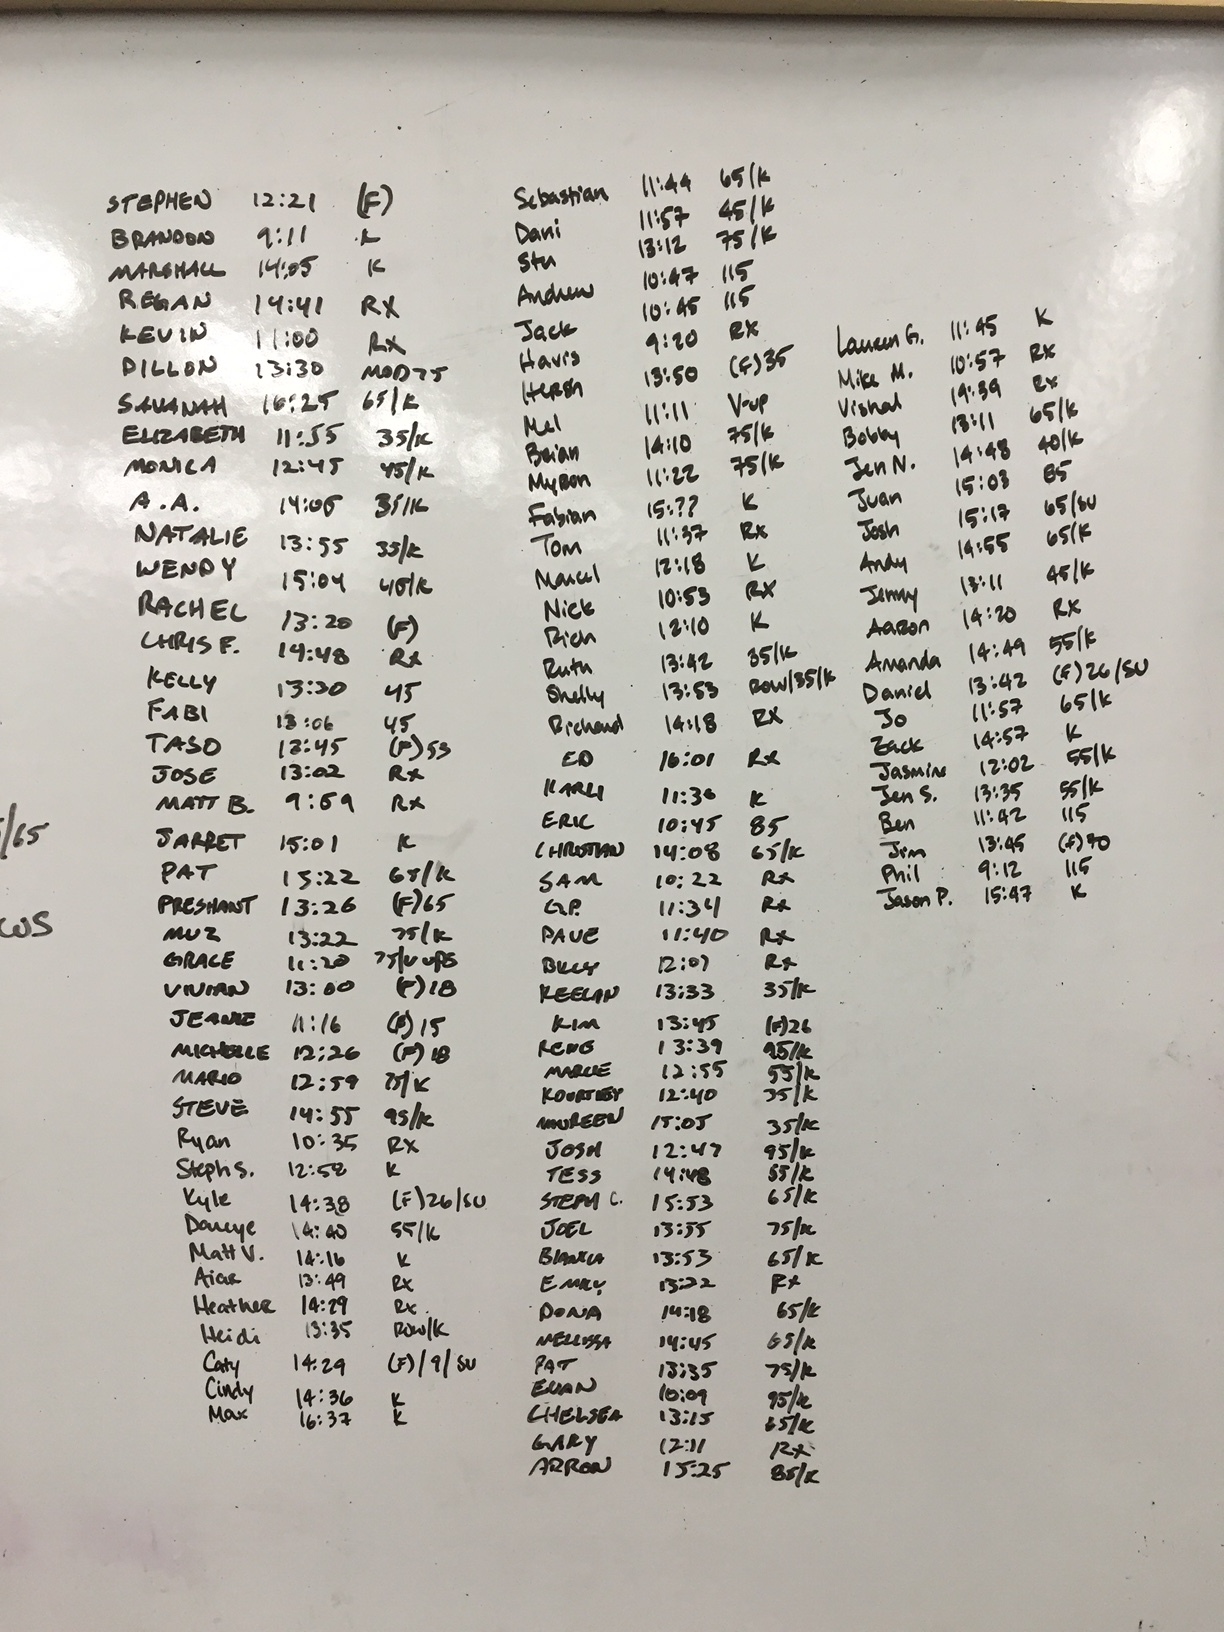 STEPHEN 12:21 (F)
BRANDON 9:11 K
MARSHALL 14:05 K
REGAN 14:41 RX
KEVIN 11:00 RX
DILLON 13:30 MOD75
SAVANAH 16:25 65/K
ELIZABETH 11:55 35/K
MONICA 12:45 45/K
A.A. 14:06 35/K
NATALIE 13:55 35/K
WENDY 15:04 45/K
RACHEL 13:20 (F)
CHRIS F. 14:48 RX
KELLY 13:20 45
FABI 13:06 45
TASO 13:45 (F)53
JOSE 13:02 RX
MATT B. 9:59 RX
JARRET 15:01 K
PAT 15:22 65/K
PRESHANT 13:26 (F)65
MUZ 13:22 75/K
GRACE 11:20 75/V UPS
VIVIAN 13:00 (F)18
JEANIE 11:16 (F)15
MICHELLE 12:26 (F)18
MARIO 12:59 75/K
STEVE 14:55 95/K
Ryan 10:35 RX
Steph S. 12:58 K
Kyle 14:38 (F)26/SU
14:40 55/K
Matt V. 14:16 K
13:49 RX
Heather 14:29 RX
Heidi 13:35 ROW/K
Caty 14:29 (F)/9/SU
Cindy 14:36 K
Max 16:37 K
Sebastian 11:44 65/K
Dani 11:57 45/K
Stu 13:12 75/K
Andrew 10:47 115
Jack 10:45 115
Havis 9:20 RX
Hersh 13:50 (F)35
Mel 11:11 V-up
Brian 14:10 75/K
Myron 11:22 75/K
Fabian 15:?? K
Tom 11:37 RX
Marcel 12:18 K
Nick 10:53 RX
Rich 12:10 K
Ruth 13:42 35/K
Shelly 13:53 ROW/35/K
Richard 14:18 RX
ED 16:01 RX
KARLI 11:36 K
ERIC 10:45 85
CHRISTIAN 14:08 65/K
SAM 10:22 RX
G.P. 11:34 RX
DAVE 11:40 RX
BILLY 12:07 RX
KEELAN 13:33 35/K
KIM 13:45 (F)26
RENE 13:39 95/K
MARCIE 12:55 55/K
KOURTNEY 12:40 35/K
MAUREEN 15:05 35/K
JOSH 12:47 95/K
TESS 14:48 55/K
STEPH C. 15:53 65/K
JOEL 13:55 75/K
BIANCA 13:53 65/K
EMILY 13:22 RX
DONA 14:18 65/K
MELLISSA 14:45 65/K
PAT 13:35 75/K
EVAN 10:09 95/K
CHELSEA 13:15 65/K
GARY 12:11 RX
ARRON 15:25 85/K
Lauren G. 11:45 K
Mike M. 10:57 RX
Vishal 14:39 RX
Bobby 13:11 65/K
Jen N. 14:48 40/K
Juan 15:03 85
Josh 15:17 65/SU
Andy 14:55 65/K
Jenny 13:11 45/K
Aaron 14:20 RX
Amanda 14:49 55/K
Daniel 13:42 (F)26/SU
Jo 11:57 65/K
Zack 14:57 K
Jasmine 12:02 55/K
Jen S. 13:35 55/K
Ben 11:42 115
Jim 13:45 (F)70
Phil 9:12 115
Jason P. 15:47 K
/65